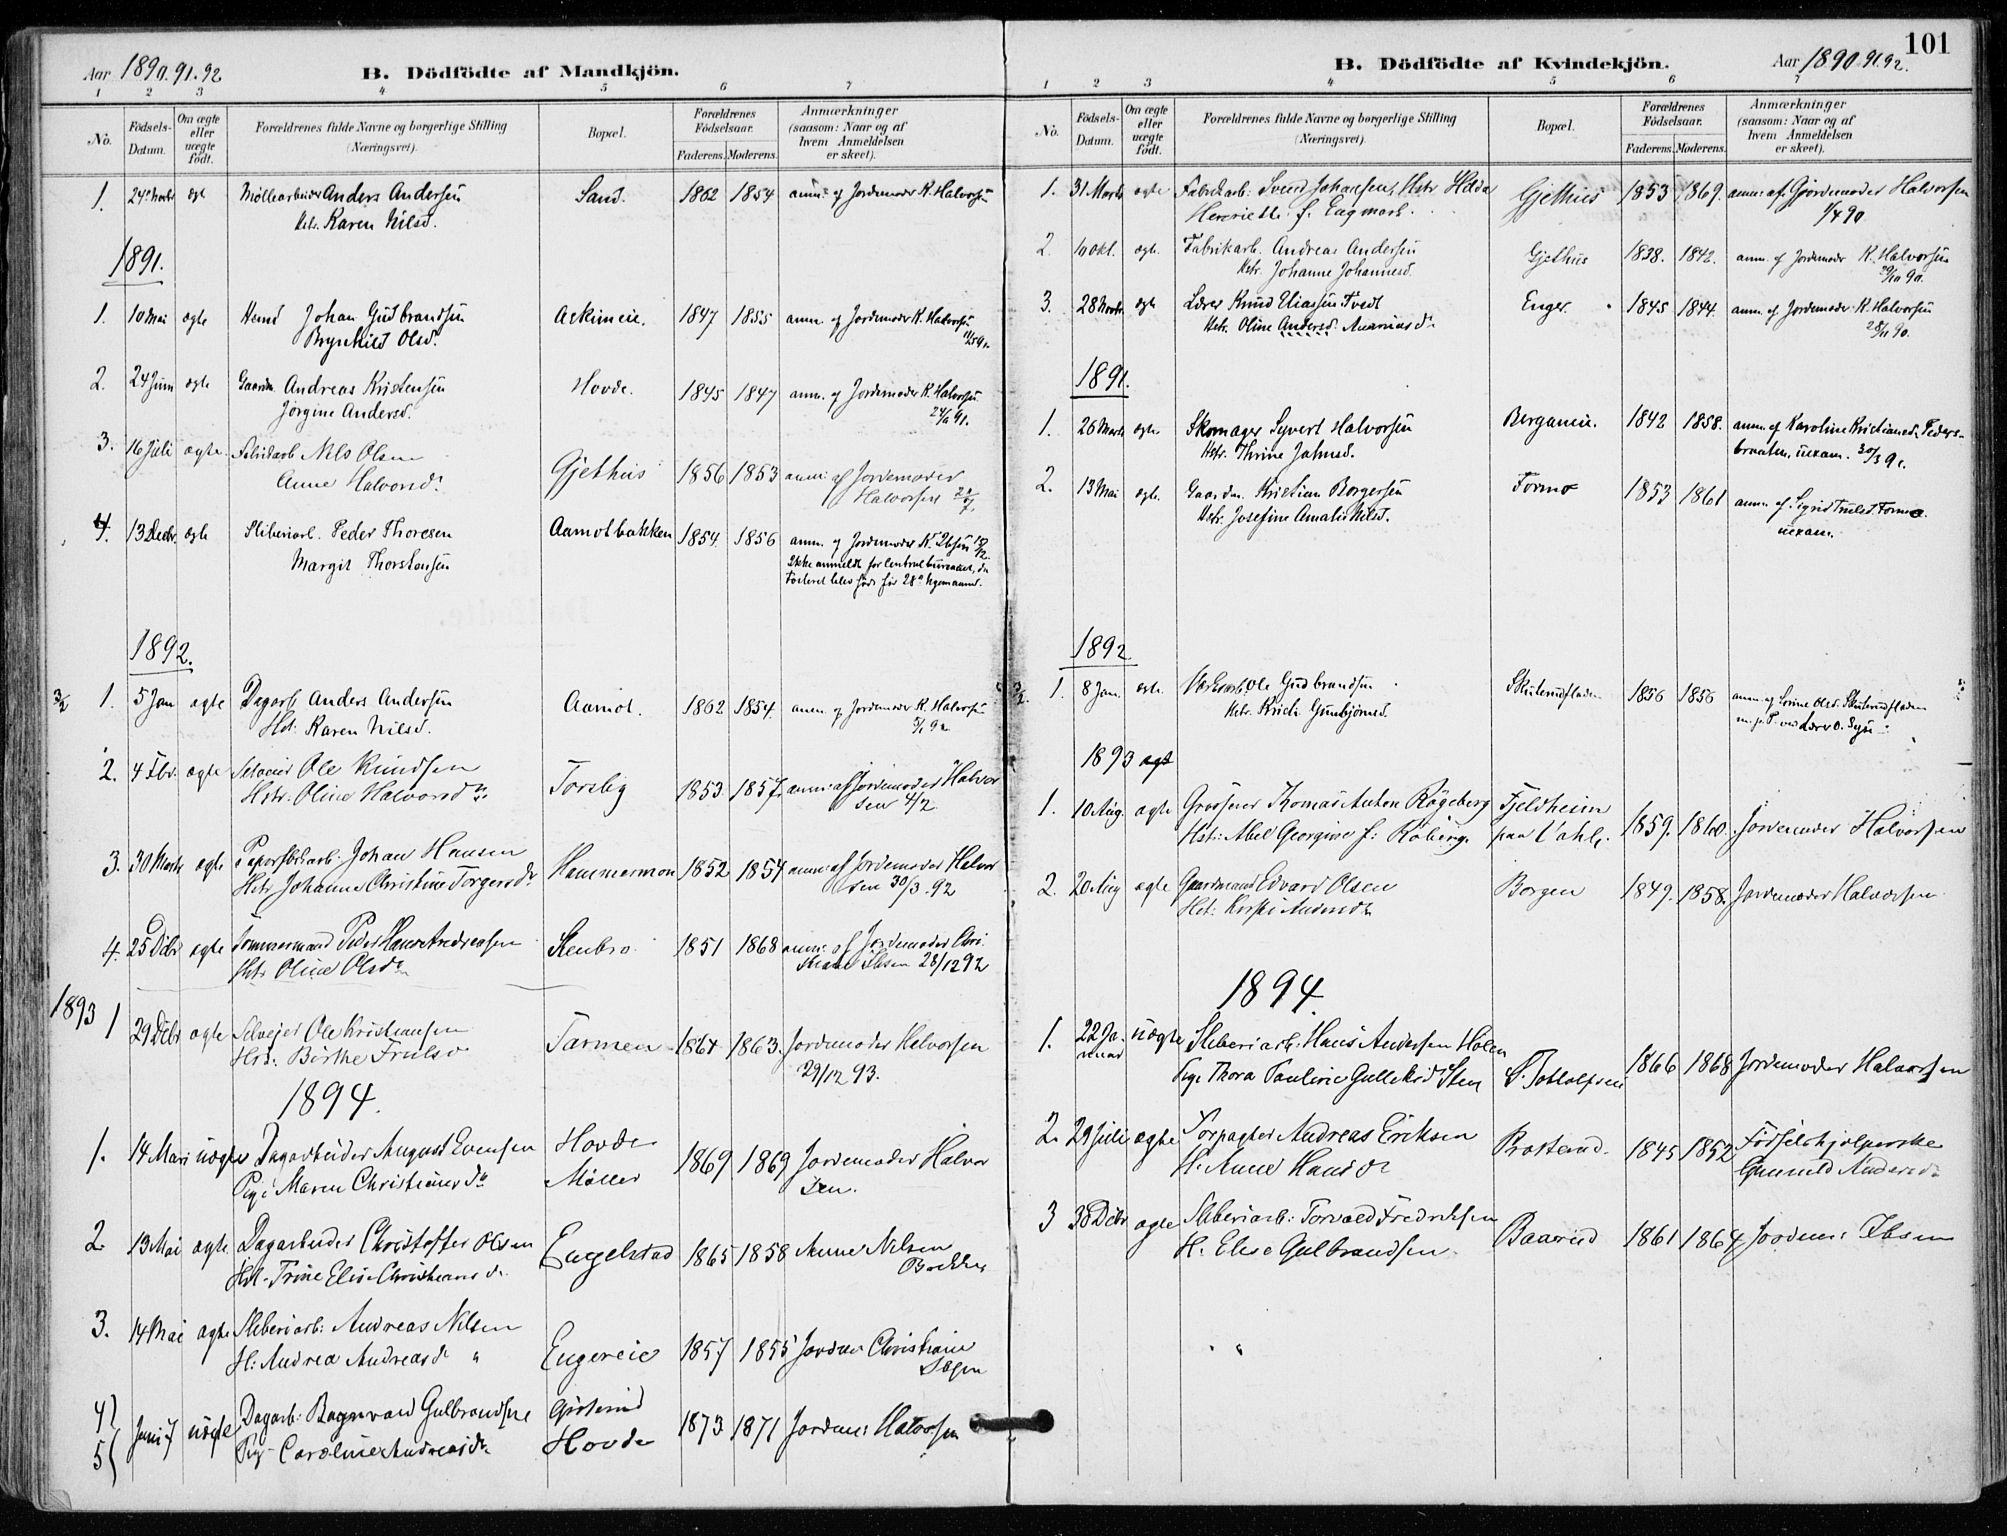 Aar 1890.91.92
B. Dödfödte af Mandkjön.
1 2 3 4 5 6 7
No.
Födsels-Datum.
Om ægte eller uægte födt.
Forældrenes fulde Navne og borgerlige Stilling (Næringsvei).
Bopæl.
Forældrenes Födselsaar.
Faderens. Moderens.
Anmærkninger (saasom: Naar og af hvem Anmeldelsen er skeet).
1. 24 Novbr ægt Møllearbeider Anders Andersen Sand. 1862 1854 anm. af Jordemoder K. Halvorsen
Hstr. Karen Nilsd.
1891.
1. 10 Mai ægte Johan Gudbrandsen 1847 1855 anm. af Jordemoder K. Halvorsen
Brynhild Olsd.
2. 24 Juni ægte Gaardm. Andreas Kristensen Hovde. 1845 1847 anm. af Jordemoder K. Halvorsen
Jørgine Andersd. 24/6 91.
3. 16 Juli ægte Fabrikarb Nils Olsen Gjethus 1856 1853 anm: af Jordemoder
Anne Halvorsd. Halvorsen
4. 13 Decbr. ægte Sliberiarb. Peder Thoresen Aamotbakken 1854 1856 anm. af Jordemoder
Margit Thorstensen
Ikke anmeldt for Centralbureauet, da
Fosteret blev født før 28de Ugem
1892.
3/2 1. 5 Jan ægte Dagarb Anders Andersen Aamot. 1862 1854. anm. af Jordemoder K. Halvorsen
Hst: Karen Nilsd.
2. 4 Fbr. ægte Selveier Ole Knudsen Torsby 1853 1857. anm: af Jordemoder Halvor
Hstr: Oline Halvorsdtr. sen 4/2
3. 30 Marts ægte Papirfbkarb: Johan Hansen Hammermoen 1852 1854 anm: af Jordemoder Halvor
Hstr Johanne Christine Torgersdtr. sen 30/3.92
4. 25 Dcbr ægte Tømmermand Peder Hans Andreassen Stenbro 1851 1868 anm: af Jordemoder Chri
Hstr Oline Olsdtr. stiane Ibsen 28/12 92
1893 1 29 Dcbr ægte Selvejer Ole Kristiansen Tarmen 1864 1863. Jordemoder Halvorsen
Hst: Birthe Trulsd 29/12 93.
1894.
1. 14 Mars uægte Dagarbeider August Evensen Hovde 1869 1869 Jordemoder Halvor
Pige Maren Christiansdtr Møller sen.
2 13 Mai ægte Dagarbeider Christoffer Olsen Engelstad 1865 1858 Anne Nilsen
Hst. Trine Elise Christiansd. Bakken
3. 14 Mai ægte Sliberiarb: Andreas Nilsen Engereie 1857 1855 Jordm Christiane
H: Andrea Andreasd " Ibsen
4} Juni 7 uægte Dagarb: Bagnvald Gulbrandsen 1873 1871 Jordem: Halvorsen
5{ Pige Caroline Andreasdtr Hovde
101
B. Dödfödte af Kvindekjön.
Aar 1890 91 92.
1 2 3 4 5 6 7
No.
Födsels-Datum.
Om ægte eller uægte födt.
Forældrenes fulde Navne og borgerlige Stilling (Næringsvei).
Bopæl.
Forældrenes Födselsaar.
Faderens. Moderens.
Anmærkninger (saasom: Naar og af hvem Anmeldelsen er skeet).
1. 31 Marts ægte Fabrikarb: Svend Johansen, Hstr Hilda Gjethus 1853 1869. anm: af Gjordemoder Halvorsen
Henriette f. Engmark. 1/4 90
2. 10 Okt. ægte. Fabrikarb. Andreas Andersen Gjethus 1838. 1842. anm. af Jordemoder K. Halvorsen
Hstr. Johanne Johannesd.
3. 28 Novbr ægte Lærer Knud Eliassen Tvedt Enger. 1845 1844. anm. af Jordemoder K. Halvorsen
Hstr. Oline Andersd. Ananiasdr 28/11 90.
1891.
1. 26 Marts ægte. Skomager Syvert Halvorsen Berganeie. 1842 1858. anm. af Karoline Kristiansd. Peders-
Hstr. Thrine Jahnsd. braaten, uexam. 30/3 91.
2. 13 Mai ægte. Gaardm. Kristian Borgersen Formo 1853 1861 anm. af Sigrid Trulsd. Formo.
Hstr. Josefine Amalie Nilsd. uexam.
1892
3/2. 1. 8 Jan. ægte. Ole Gudbrandsen Skuterudfladen 1856 1856 anm. af Olsd. Skuterudfladen
Hstr. Gunbjørnsd.
1893
1. 10 Aug. ægte Grosserer Thomas Anton Røgeberg Fjeldheim 1859. 1860. Jordemoder Halvorsen
Hst: Abel Georgine f: paa Vahl.
2. 20 Aug ægte Gaardmand Edvard Olsen Borgen 1849. 1858. Jordemoder Halvorsen
Hst: Andersdtr
1894.
1. 22 Januar uægte Sliberiarb: Hans Andersen Holen 1866 1868 Jordemoder Halvorsen
Pige Thora Pauline Gulleksd Sten
2. 29 Juli ægte Forpagter Andreas Eriksen 1845 1852 Fødselshjælperske
H. Anne Hansdr Gunnild Andersd.
3 30 Dcbr ægte Sliberiarb: Torvald Fredriksen Baarud 1861 1864 Jordem: Ibsen
H. Elise Gulbrandsen